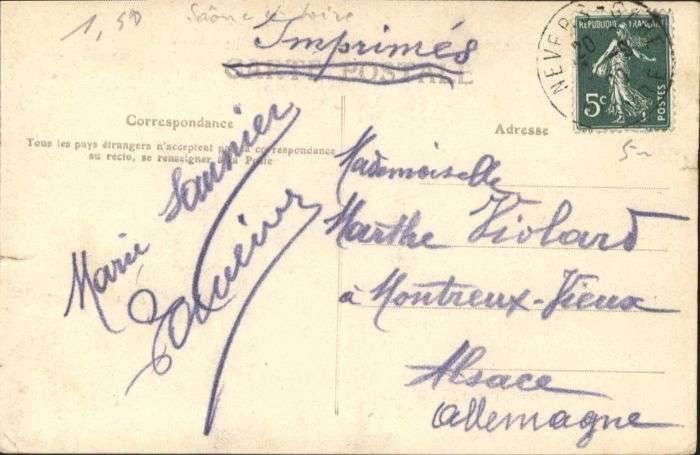 1,50 Saône et Loire
Imprimés
CARTE POSTALE
NEVERS-GARE
20
REPUBLIQUE FRANÇAISE
5c
POSTES
Correspondance
Tous les pays étrangers n'acceptent pas la correspondance
au recto, se renseigner à la Poste
Adresse
Marie Saunier
Mademoiselle
Marthe Violard
à Montreux-Vieux
Alsace
Allemagne